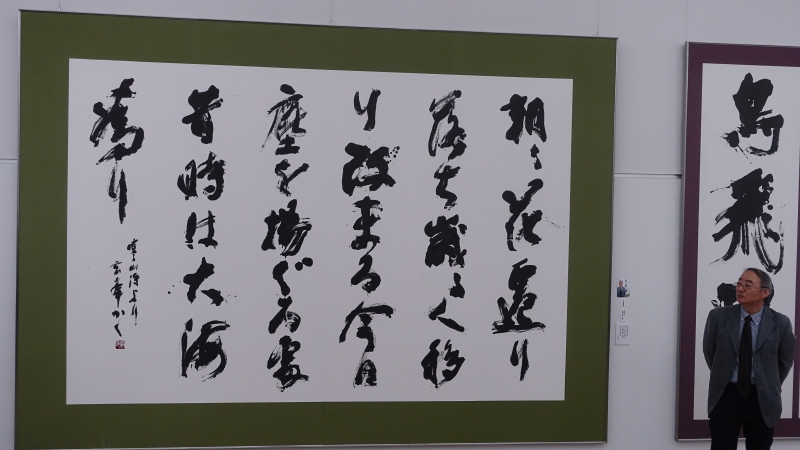 朝々花遷り
落ち歳々人移
り改まる今日
塵を揚ぐる處
昔時は大海
為り
寒山詩より
鳥飛